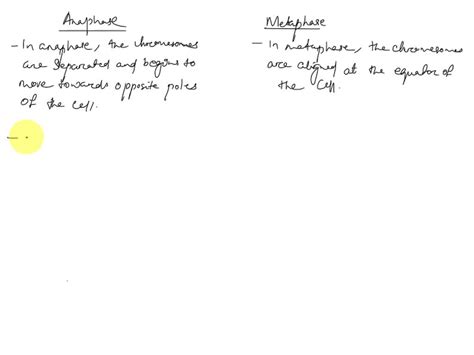 Anaphase
- In anaphase, the chromosomes
are separated and begins to
move towards opposite poles
of the cell.
-
Metaphase
- In metaphase, the chromosomes
are aligned at the equator of
the cell.